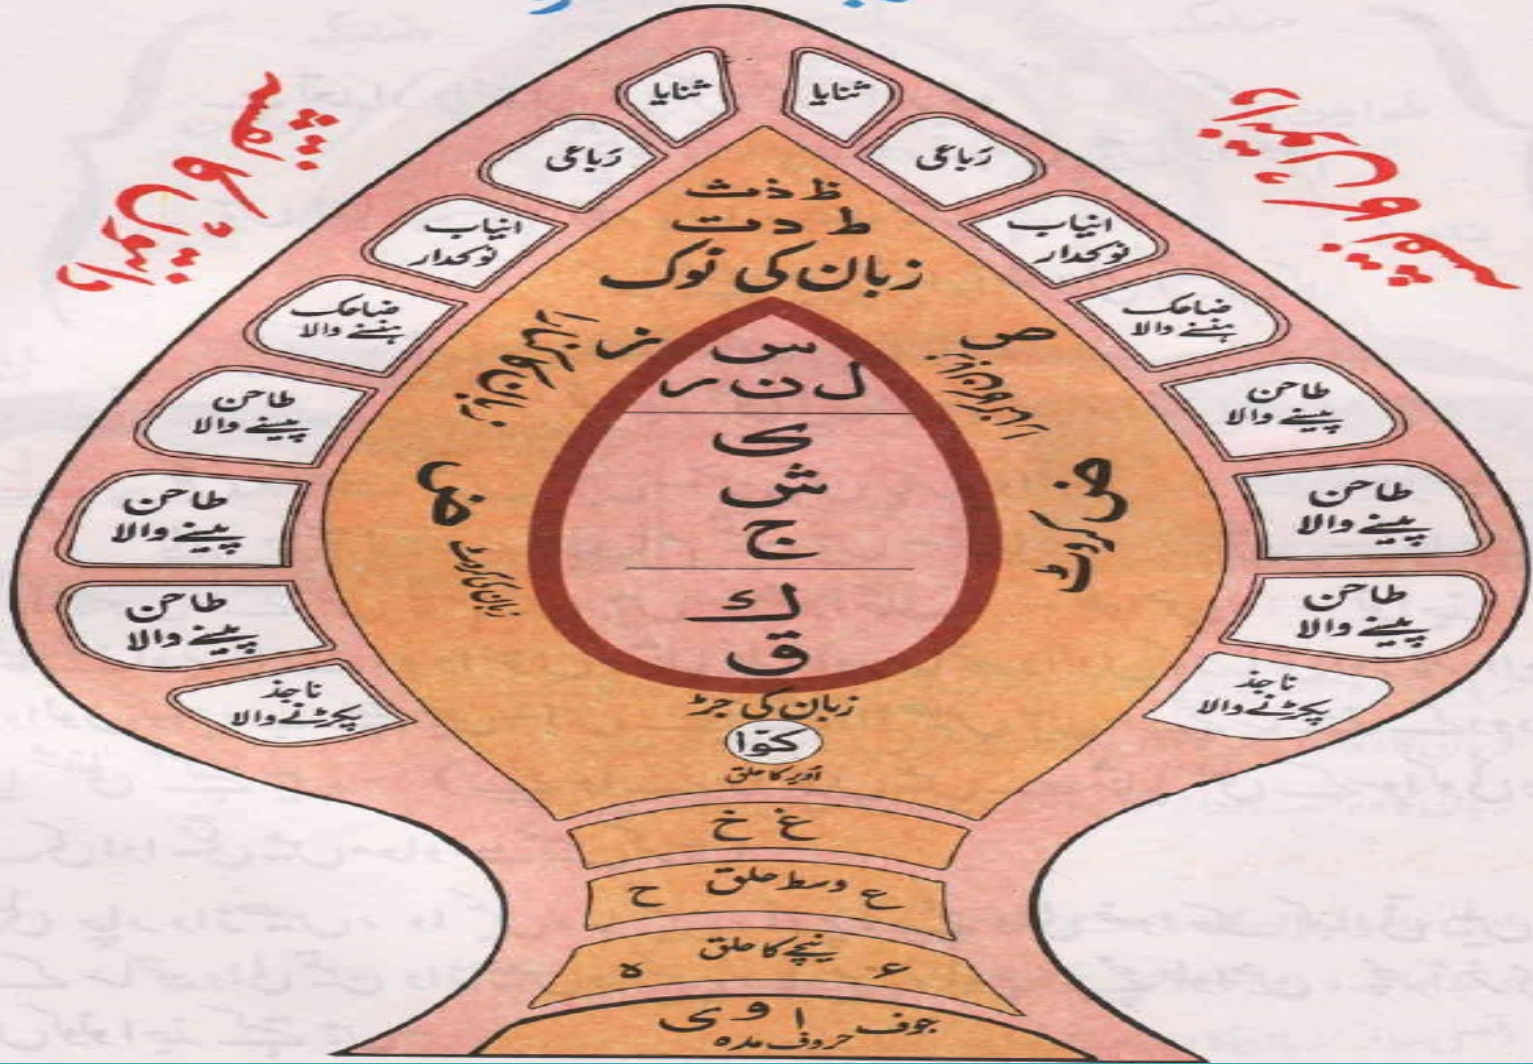 ثنایا
ثنایا
رَباعی
رَباعی
انیاب
نوکدار
انیاب
نوکدار
ضاحک
ہنسنے والا
ضاحک
ہنسنے والا
طاحن
پیسنے والا
طاحن
پیسنے والا
طاحن
پیسنے والا
طاحن
پیسنے والا
طاحن
پیسنے والا
طاحن
پیسنے والا
ناجذ
پکڑنے والا
ناجذ
پکڑنے والا
ظ ذ ث
ط د ت
زبان کی نوک
ص
ز
س
ل ن ر
ی
ش
ج
ك
ق
ض کروٹ
ض
زبان کی کروٹ
زبان کی جڑ
کوّا
اوپر کا حلق
غ خ
ع وسط حلق ح
ء نیچے کا حلق ہ
جوف ا و ی
حروف مدہ